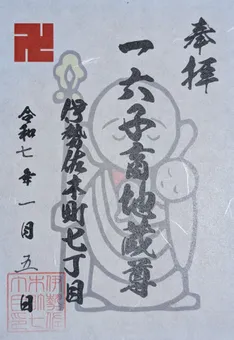 奉拝
一六子育地蔵尊
伊勢佐木町七丁目
令和七年一月五日
卍